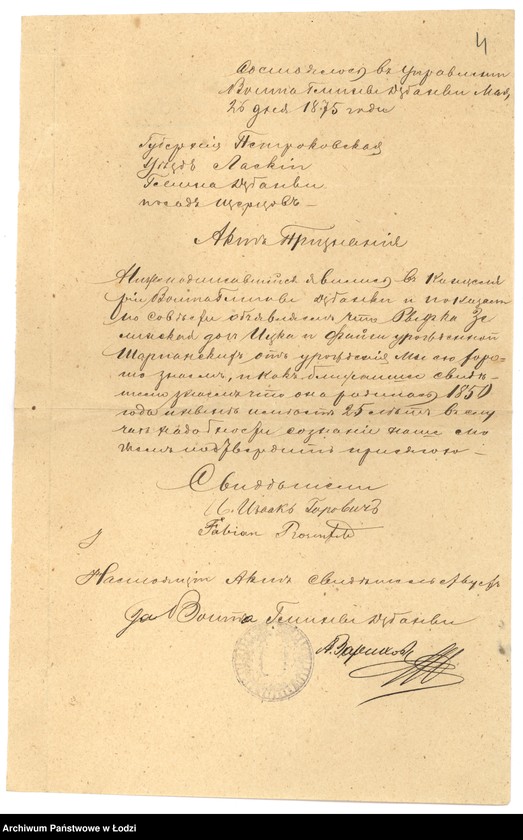 4
Состоялось въ Управленіи
Войта Гмины Дзбанки Мая
26 дня 1875 года
Губернія Петроковская
Уѣздъ Ласкій
Гмина Дзбанки
посадъ Щерцовъ
Актъ Признанія
Нижеподписавшійся явились въ Канцеля
рію Войта Гмины Дзбанки и показали
по совѣсти объявляемъ что Рыфка Зе
линская дочь Ицка и Файги урожденной
отъ урожденія мы ее хоро-
шо знаемъ, и какъ ближайшіе свидѣ-
тели знаемъ что она родилась 1850
года и нынѣ имѣетъ 25 лѣтъ въ слу
чаѣ надобности сознаніе наше мо
жемъ подтвердить присягою
Свидѣтели
И. Ицаакъ Горовичъ
Fabian
Настоящій Актъ свидѣтельствуетъ
за Войта Гмины Дзбанки
Archiwum Państwowe w Łodzi